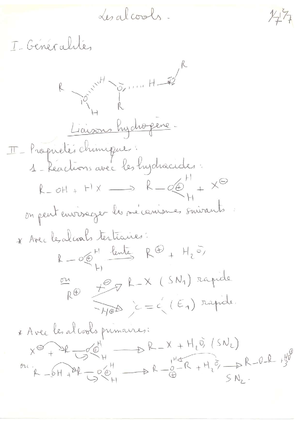 Les alcools.
I - Généralités
R
H
R
H
R
Liaisons hydrogène.
II - Propriétés chimiques :
1 - Réactions avec les hydracides :
R - OH + HX → R - O⊕ H H + X⊖
on peut envisager les mécanismes suivants :
* Avec les alcools tertiaires :
R - O⊕ H H lente → R⊕ + H₂O
ou
R⊕ X⊖ → R - X (SN1) rapide
-H⊕ → C = C (E1) rapide
* Avec les alcools primaires :
X⊖ + R - O⊕ H H → R - X + H₂O (SN2)
ou R - OH + R - O⊕ H H → R - O⊕ - R + H₂O → R - O - R +
SN2.